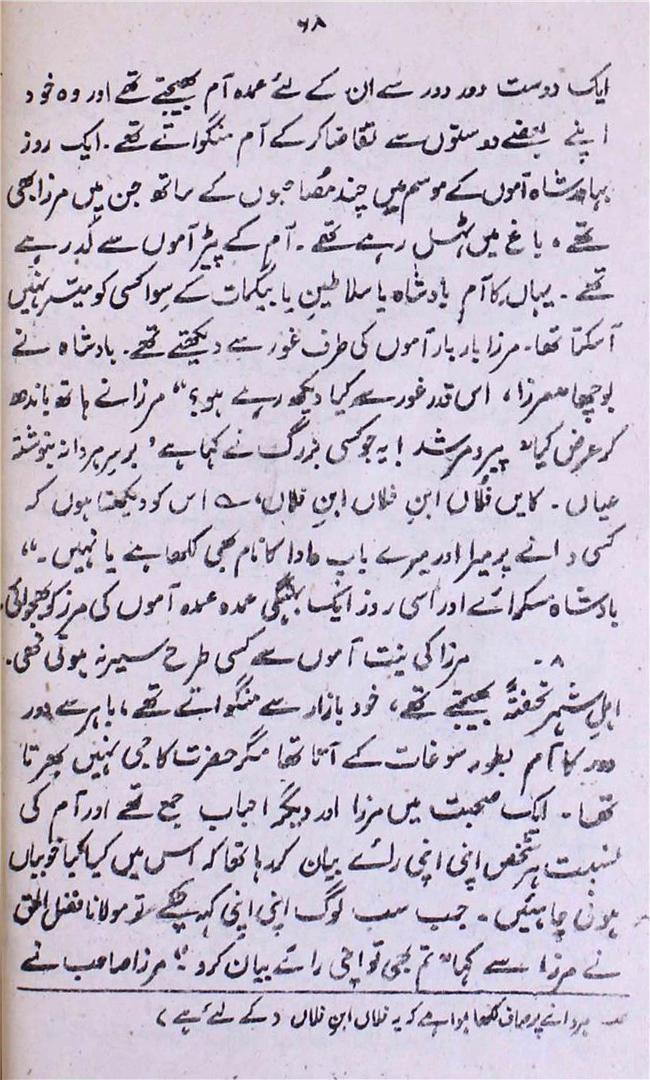 ۶۸
ایک دوست دور دور سے ان کے لئے عمدہ آم بھیجتے تھے اور وہ خود
اپنے بعضے دوستوں سے تقاضا کرکے آم منگواتے تھے۔ ایک روز
بہادر شاہ آموں کے موسم میں چند مُصاحبوں کے ساتھ جن میں مرزا بھی
تھے، باغ میں ٹہل رہے تھے۔ آم کے پیڑ آموں سے لد رہے
تھے۔ یہاں کا آم بادشاہ یا سلاطین یا بیگمات کے سوا کسی کو میسر نہیں
آ سکتا تھا۔ مرزا بار بار آموں کی طرف غور سے دیکھتے تھے۔ بادشاہ نے
پوچھا "مرزا، اس قدر غور سے کیا دیکھ رہے ہو؟" مرزا نے ہاتھ باندھ
کر عرض کیا "پیر و مرشد! یہ جو کسی بزرگ نے کہا ہے ' بر سر ہر دانہ بنوشتہ
عیاں۔ کایں فُلاں ابنِ فلاں ابنِ فلاں'، اس کو دیکھتا ہوں کہ
کسی دانے پر میرا اور میرے باپ دادا کا نام بھی لکھا ہے یا نہیں۔"
بادشاہ مسکرائے اور اسی روز ایک بہنگی عمدہ عمدہ آموں کی مرزا کو بھجوائی۔
۸۔ مرزا کی نیت آموں سے کسی طرح سیر نہ ہوتی تھی۔
اہلِ شہر تحفتہً بھیجتے تھے، خود بازار سے منگواتے تھے، باہر سے دور
دور کا آم بطور سوغات کے آتا تھا مگر حضرت کا جی نہیں بھرتا
تھا۔ ایک صحبت میں مرزا اور دیگر احباب جمع تھے اور آم کی
نسبت ہر شخص اپنی اپنی رائے بیان کر رہا تھا کہ اس میں کیا کیا خوبیاں
ہونی چاہئیں۔ جب سب لوگ اپنی اپنی کہہ چکے تو مولانا فضل الحق
نے مرزا سے کہا "تم بھی تو اپنی رائے بیان کرو۔" مرزا صاحب نے
ہر دانے پر صاف لکھا ہوا ہے کہ یہ فلاں ابنِ فلاں (کے لئے ہے)